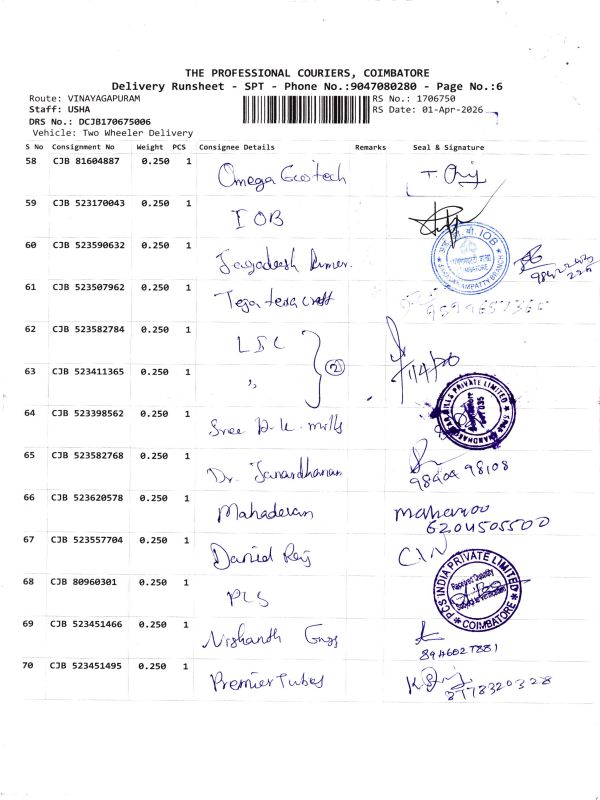 THE PROFESSIONAL COURIERS, COIMBATORE
Delivery Runsheet - SPT - Phone No.:9047080280 - Page No.:6
Route: VINAYAGAPURAM RS No.: 1706750
Staff: USHA RS Date: 01-Apr-2026
DRS No.: DCJB170675006
Vehicle: Two Wheeler Delivery
S No Consignment No Weight PCS Consignee Details Remarks Seal & Signature
58 CJB 81604887 0.250 1 Omega Ecotech
59 CJB 523170043 0.250 1 IOB
60 CJB 523590632 0.250 1 Jagadeesh Kumar.
IOB
COIMBATORE
61 CJB 523507962 0.250 1 Teja terra craft
62 CJB 523582784 0.250 1 LIC
2
63 CJB 523411365 0.250 1 "
PRIVATE LIMITED
64 CJB 523398562 0.250 1 Sree P.K. mills
65 CJB 523582768 0.250 1 Dr. Janardhanan
98404 98108
66 CJB 523620578 0.250 1 Mahadevan
6204505500
67 CJB 523557704 0.250 1 Daniel Raj
68 CJB 80960301 0.250 1 PCS
PCS INDIA PRIVATE LIMITED
COIMBATORE
69 CJB 523451466 0.250 1 Nishanth Engg
70 CJB 523451495 0.250 1 Premier Tubes